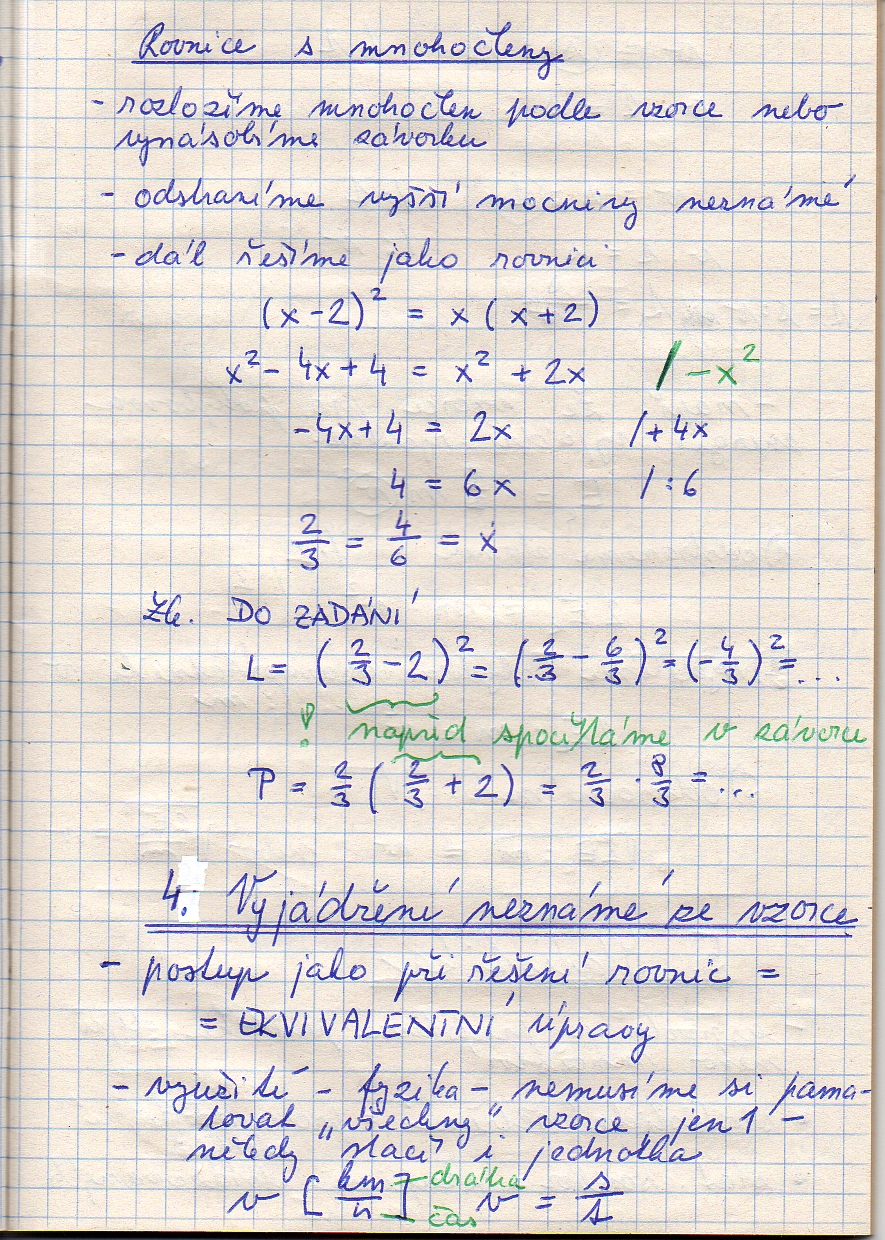 Rovnice s mnohočleny
- rozložíme mnohočlen podle vzorce nebo
vynásobíme závorku
- odstraníme vyšší mocniny neznámé
- dál řešíme jako rovnici
(x - 2)² = x ( x + 2)
x² - 4x + 4 = x² + 2x / - x²
- 4x + 4 = 2x / + 4x
4 = 6x / : 6
2/3 = 4/6 = x
Zk. DO ZADÁNÍ
L = (2/3 - 2)² = (2/3 - 6/3)² = (- 4/3)² = ...
! napřed spočítáme v závorce
P = 2/3 (2/3 + 2) = 2/3 · 8/3 = ...
4. Vyjádření neznámé ze vzorce
- postup jako při řešení rovnic =
= EKVIVALENTNÍ úpravy
- využití - fyzika - nemusíme si pama-
tovat „všechny“ vzorce, jen 1 -
někdy stačí i jednotka
v [km/h] - dráha - čas v = s/t